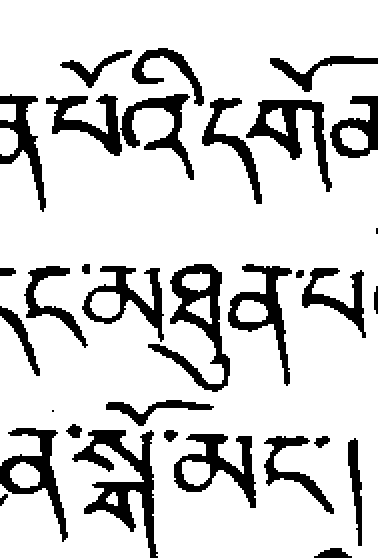 ན་པོའི་དགོན
དང་མཐུན་པ
ན་སྒོ་མང་།